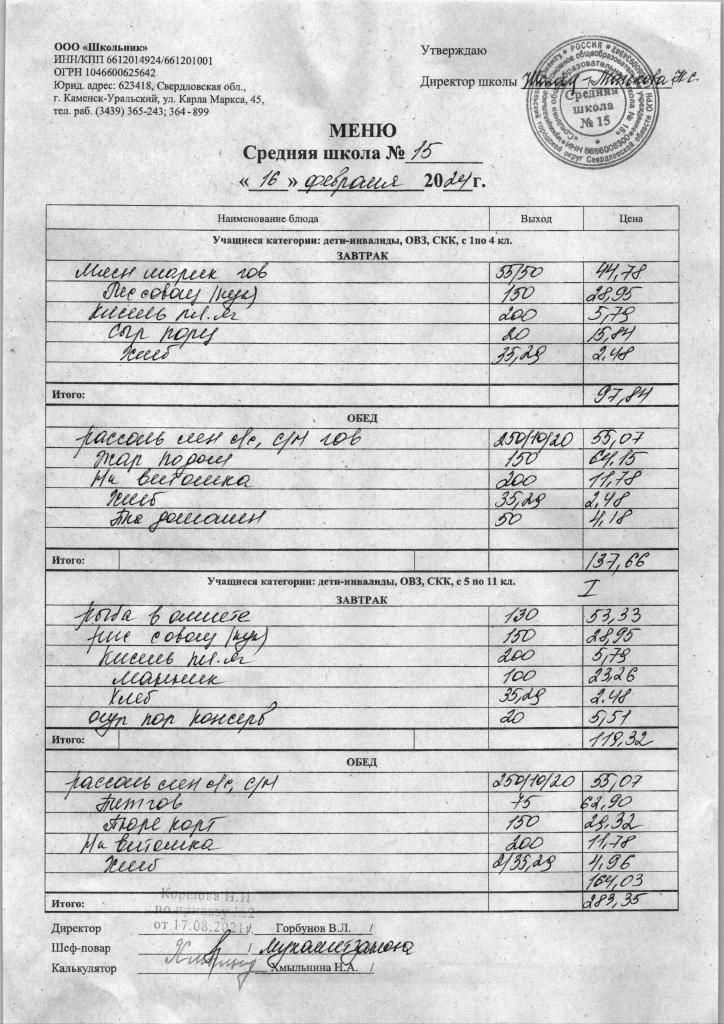 ООО «Школьник»
ИНН/КПП 6612014924/661201001
ОГРН 1046600625642
Юрид. адрес: 623418, Свердловская обл.,
г. Каменск-Уральский, ул. Карла Маркса, 45,
тел. раб. (3439) 365-243; 364 - 899
Утверждаю
Директор школы
Средняя
школа
№ 15
МЕНЮ
Средняя школа № 15
« 16 » февраля 2024 г.
Наименование блюда Выход Цена
Учащиеся категории: дети-инвалиды, ОВЗ, СКК, с 1по 4 кл.
ЗАВТРАК
гов 55/50 44,78
150 28,95
Кисель пл.яг 200 5,79
Сыр порц 20 15,84
Хлеб 35,29 2,48
Итого: 97,84
ОБЕД
рассоль лен с/с, с/м гов 250/10/20 55,07
Жар по дом 150 64,15
Н-к витошка 200 11,78
Хлеб 35,29 2,48
домашн 50 4,18
Итого: 137,66
Учащиеся категории: дети-инвалиды, ОВЗ, СКК, с 5 по 11 кл. I
ЗАВТРАК
рыба в омлете 130 53,33
рис с овощ (кук) 150 28,95
Кисель пл.яг 200 5,79
Манник 100 23,26
Хлеб 35,29 2,48
огур пор консерв 20 5,51
Итого: 119,32
ОБЕД
рассоль лен с/с, с/м 250/10/20 55,07
Бит гов 75 62,90
Пюре карт 150 29,32
Н-к витошка 200 11,78
Хлеб 2/35,29 4,96
164,03
Итого: 283,35
Коршова Н.И
по приказу №2
от 17.08.2021г
Директор / Горбунов В.Л. /
Шеф-повар /
Калькулятор / Хмыльнина Н.А. /